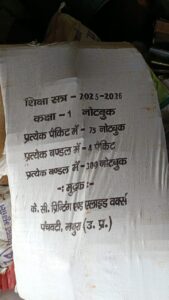 शिक्षा सत्र - 2025-2026
कक्षा - 1 नोटबुक
प्रत्येक पैकिट में - 75 नोटबुक
प्रत्येक बण्डल में - 4 पैकिट
प्रत्येक बण्डल में - 300 नोटबुक
-: मुद्रक :-
के. सी. प्रिन्टिंग एण्ड एलाइड वर्क्स
पंचवटी, मथुरा (उ. प्र.)